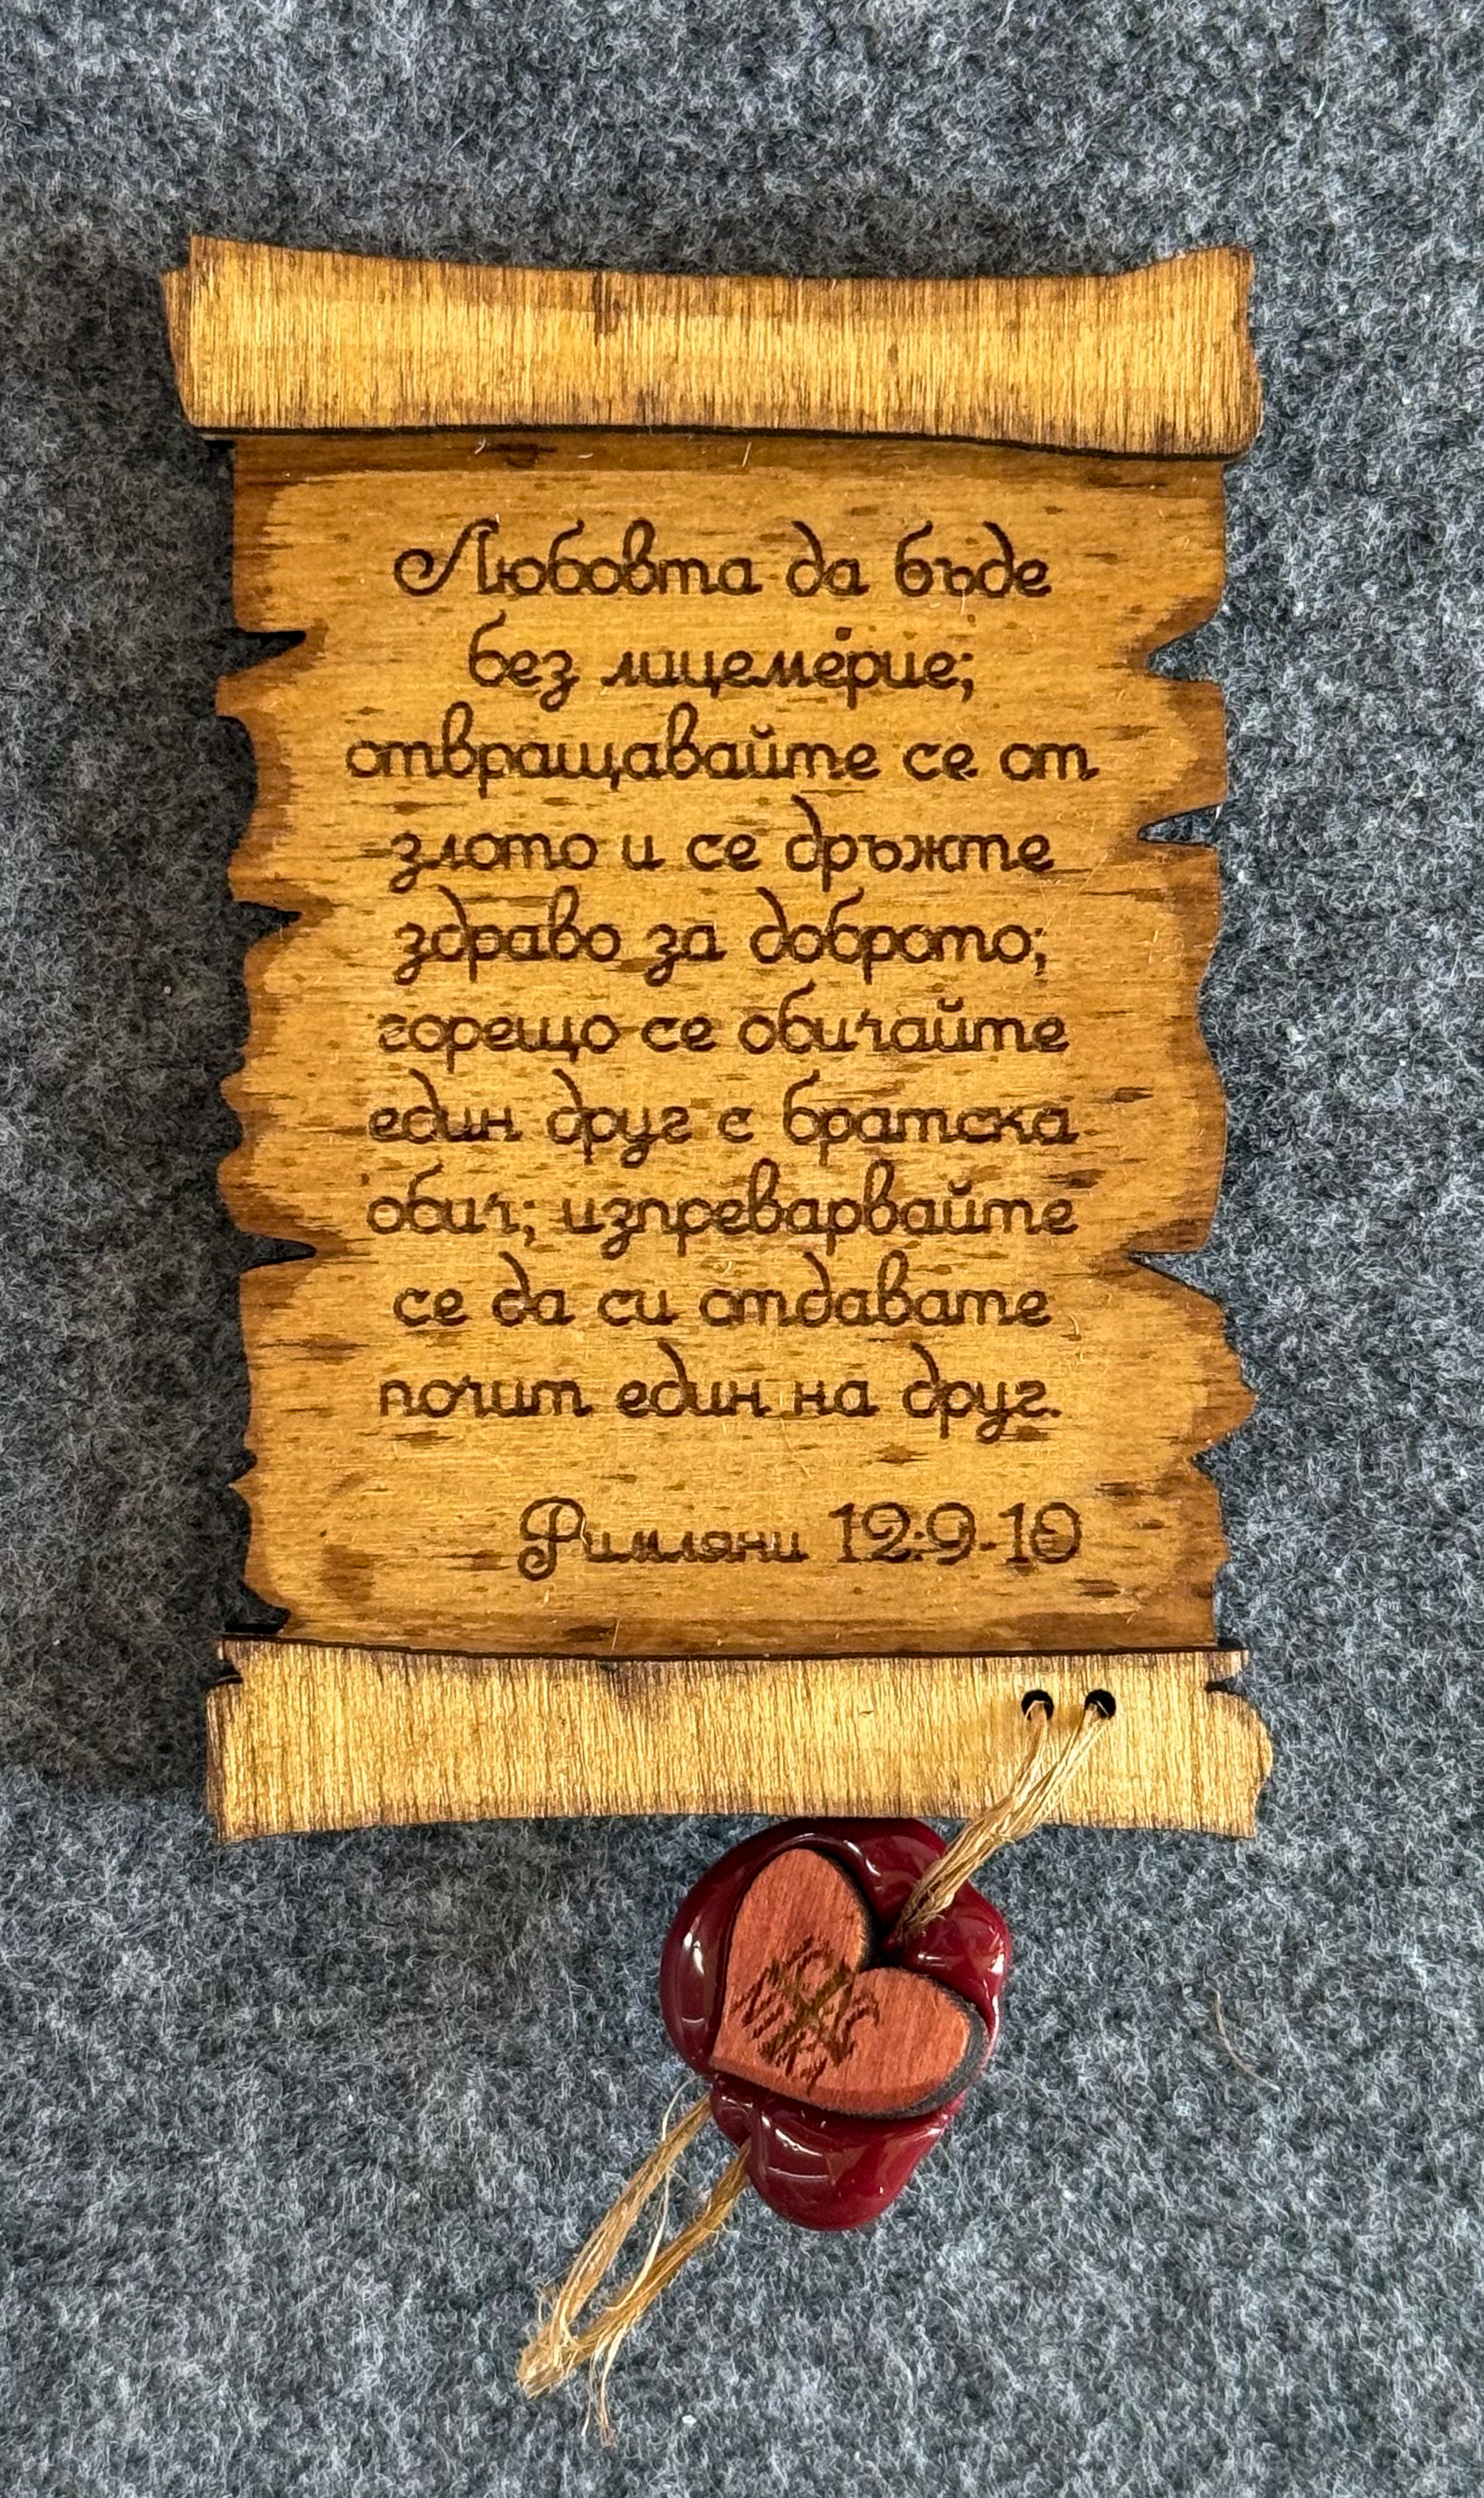 Любовта да бъде
без лицемерие;
отвращавайте се от
злото и се дръжте
здраво за доброто;
горещо се обичайте
един друг с братска
обич; изпреварвайте
се да си отдавате
почит един на друг.
Римляни 12:9-10